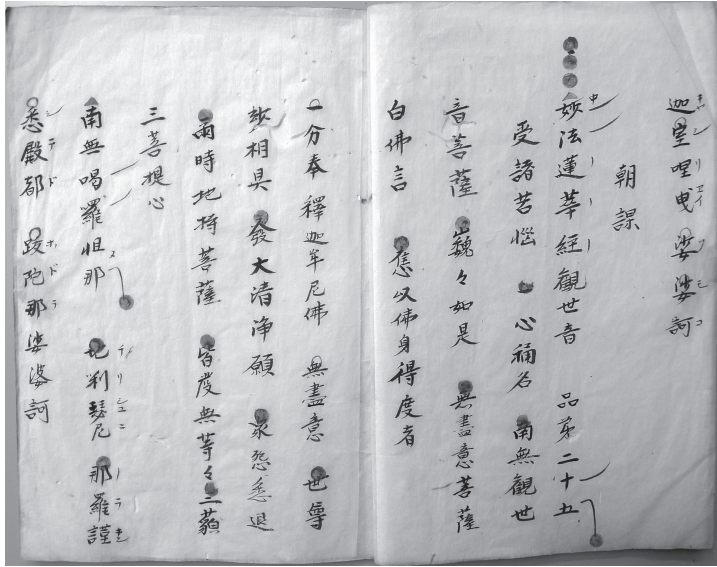 迦室哩曳 娑婆訶
朝課
妙法蓮華經觀世音 品第二十五
受諸苦惱 一心稱名 南無觀世
音菩薩 巍々如是 無盡意菩薩
白佛言 應以佛身得度者
一分奉 釋迦牟尼佛 無盡意 世尊
妙相具 發大清淨願 衆怨悉退
爾時地持菩薩 皆發無等々三藐
三菩提心
南無喝羅怛那 地利瑟尼 那羅謹
悉殿都 跋陀那娑婆訶